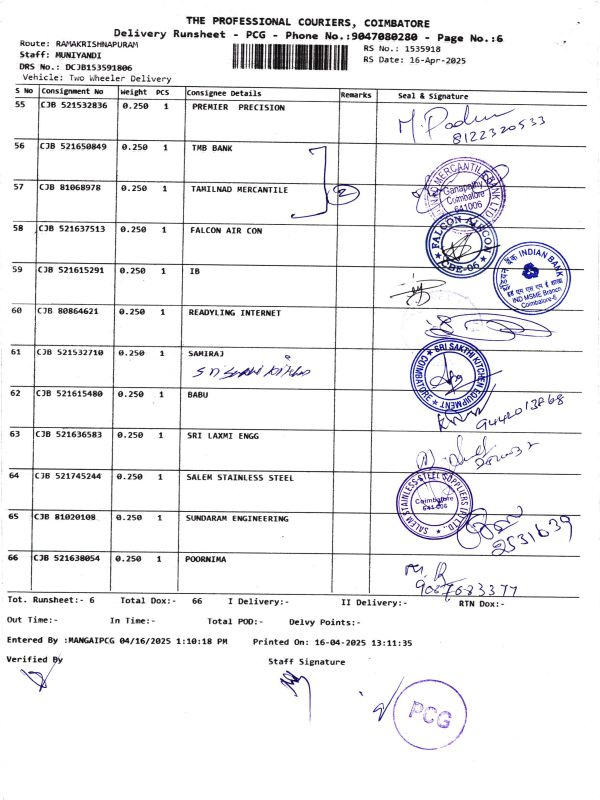 THE PROFESSIONAL COURIERS, COIMBATORE
Delivery Runsheet - PCG - Phone No.:9047080280 - Page No.:6
Route: RAMAKRISHNAPURAM
RS No.: 1535918
Staff: MUNIYANDI
RS Date: 16-Apr-2025
DRS No.: DCJB153591806
Vehicle: Two Wheeler Delivery
S No Consignment No Weight PCS Consignee Details Remarks Seal & Signature
55 CJB 521532836 0.250 1 PREMIER PRECISION
8122320533
56 CJB 521650849 0.250 1 TMB BANK
57 CJB 81068978 0.250 1 TAMILNAD MERCANTILE 2
Ganapathy
Coimbatore
641006
58 CJB 521637513 0.250 1 FALCON AIR CON
FALCON AIRCON
CBE-06
59 CJB 521615291 0.250 1 IB
INDIAN BANK
IND MSME Branch
Coimbatore-6
60 CJB 80864621 0.250 1 READYLING INTERNET
61 CJB 521532710 0.250 1 SAMIRAJ
SRI SAKTHI KITCHEN EQUIPMENT
COIMBATORE
62 CJB 521615480 0.250 1 BABU
63 CJB 521636583 0.250 1 SRI LAXMI ENGG
64 CJB 521745244 0.250 1 SALEM STAINLESS STEEL
SALEM STAINLESS STEEL SUPPLIERS (P) LTD.
Coimbatore
641 006
65 CJB 81020108 0.250 1 SUNDARAM ENGINEERING
2531639
66 CJB 521638054 0.250 1 POORNIMA
M. R
9087683377
Tot. Runsheet:- 6 Total Dox:- 66 I Delivery:- II Delivery:- RTN Dox:-
Out Time:- In Time:- Total POD:- Delvy Points:-
Entered By :MANGAIPCG 04/16/2025 1:10:18 PM Printed On: 16-04-2025 13:11:35
Verified By Staff Signature
PCG